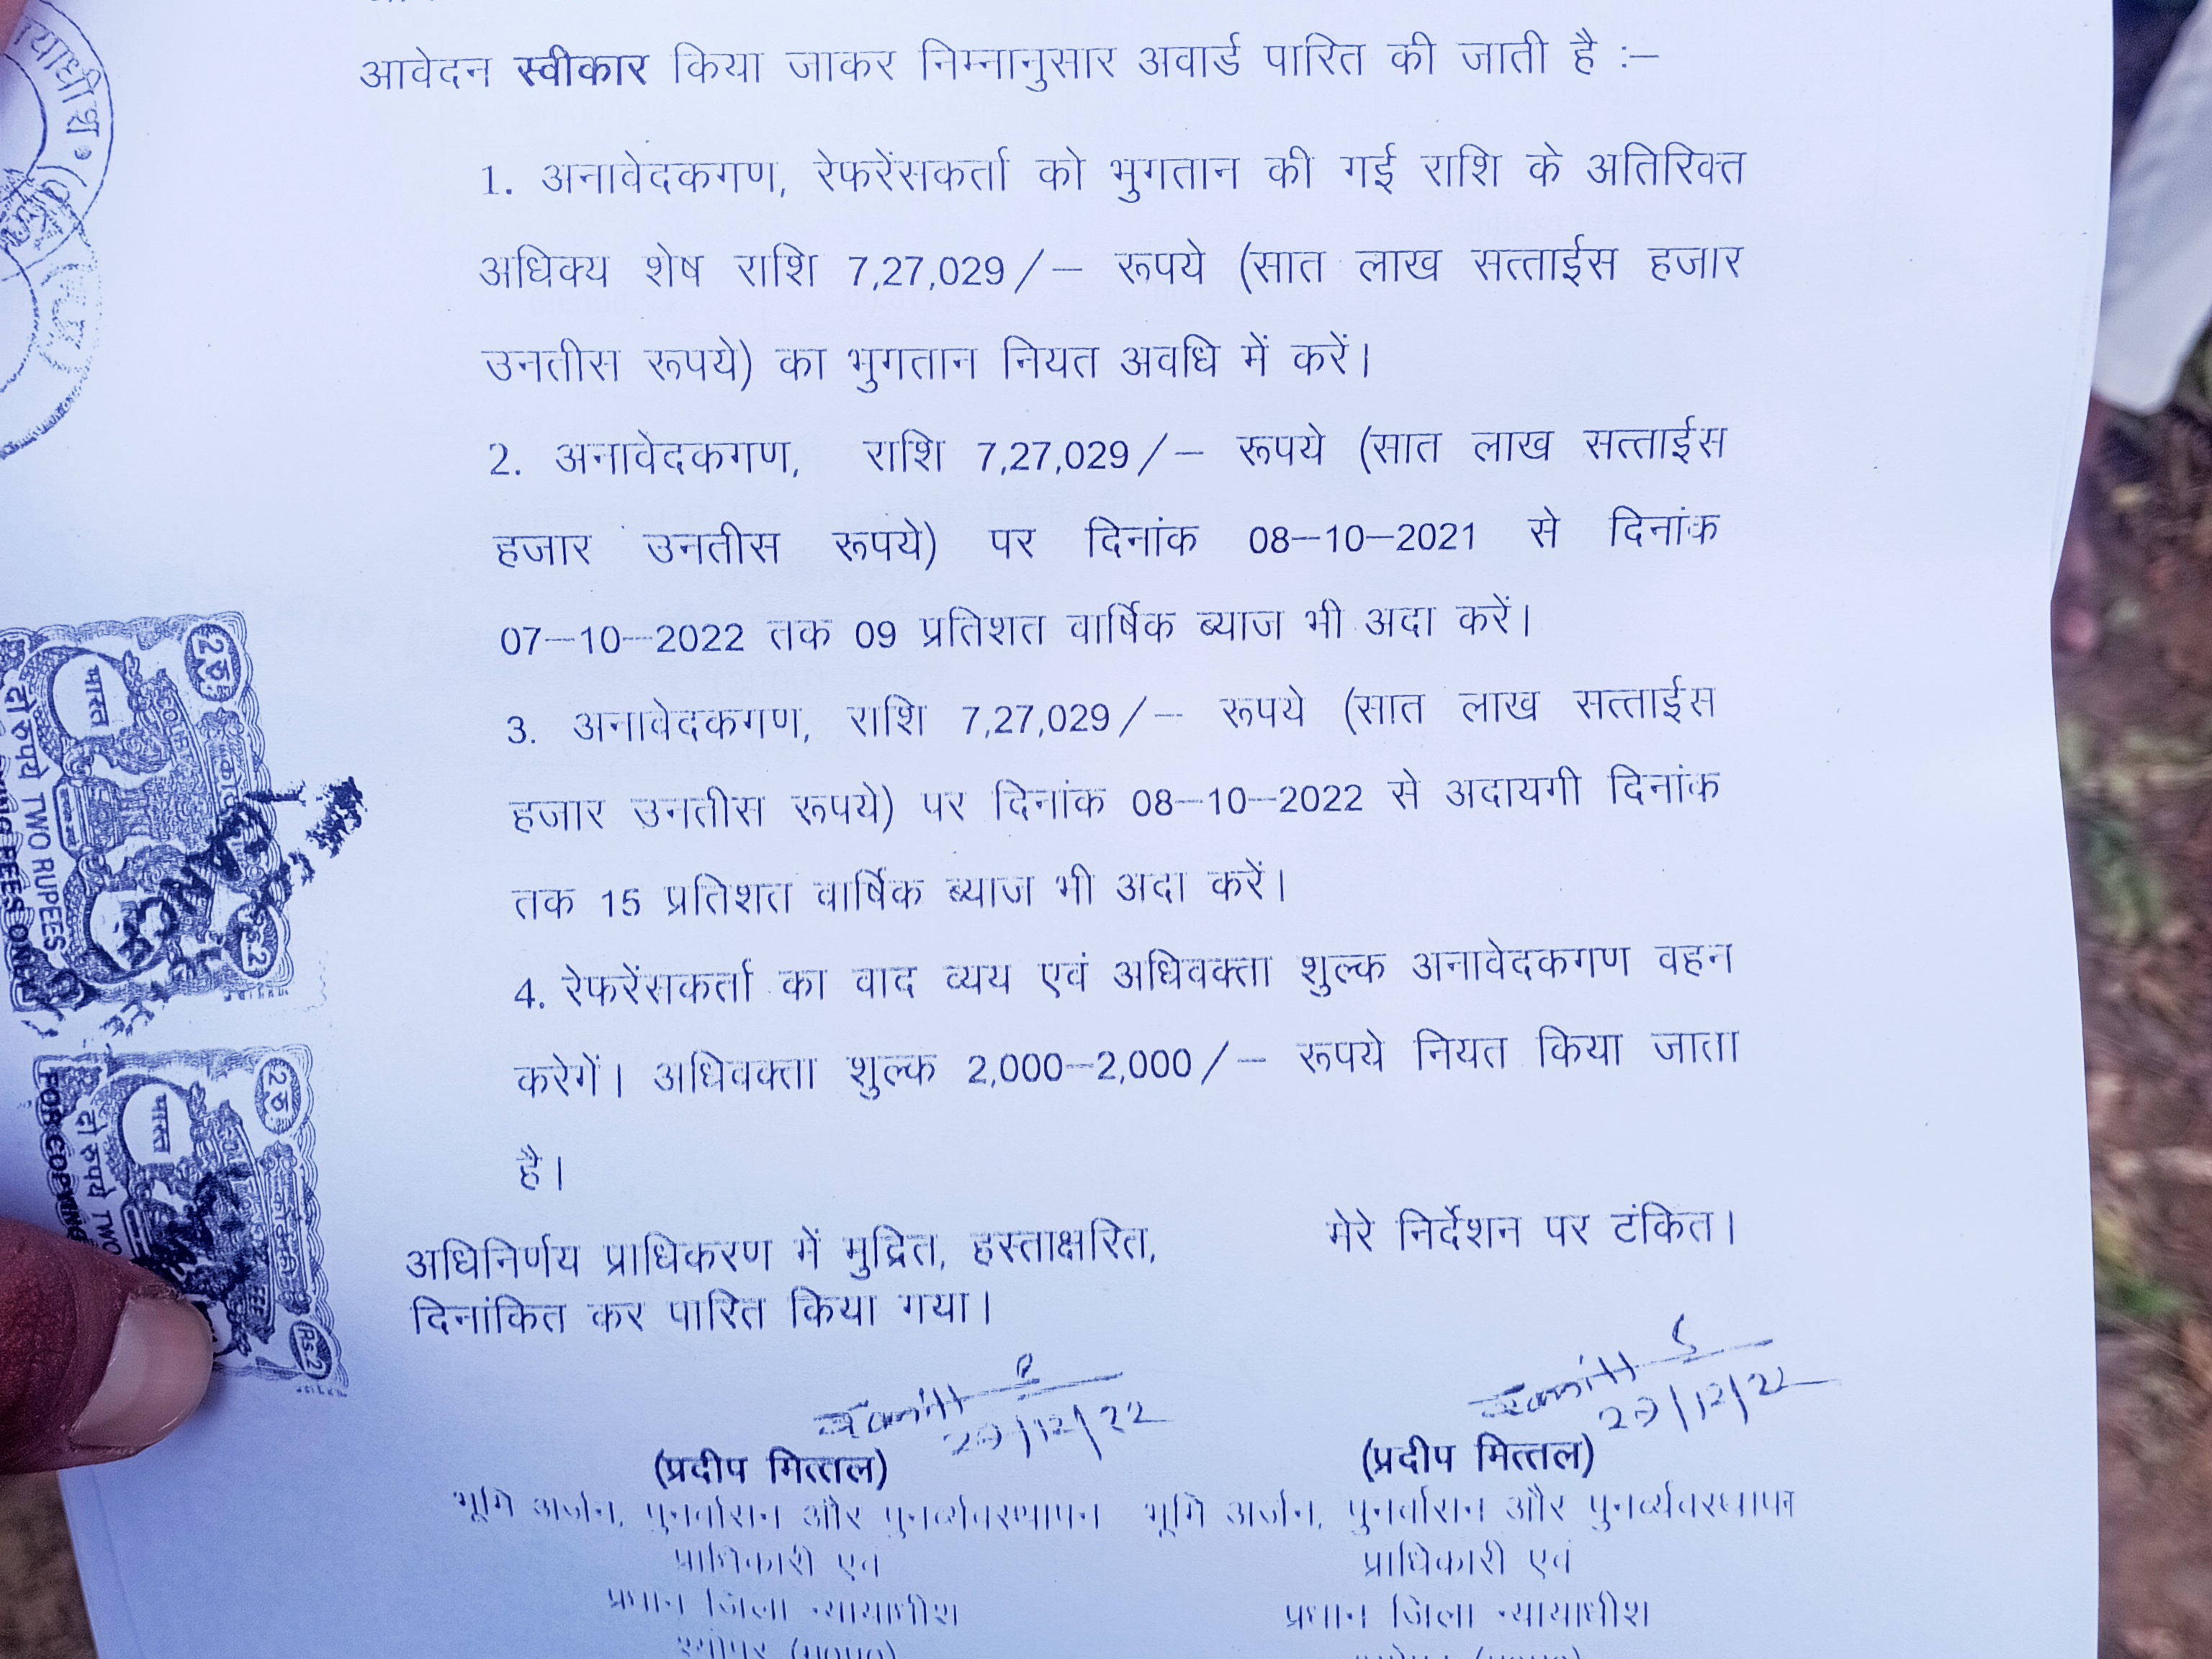 याधीश
आवेदन स्वीकार किया जाकर निम्नानुसार अवार्ड पारित की जाती है :–
1. अनावेदकगण, रेफरेंसकर्ता को भुगतान की गई राशि के अतिरिक्त
अधिक्य शेष राशि 7,27,029/– रूपये (सात लाख सत्ताईस हजार
उनतीस रूपये) का भुगतान नियत अवधि में करें।
2. अनावेदकगण, राशि 7,27,029/– रूपये (सात लाख सत्ताईस
हजार उनतीस रूपये) पर दिनांक 08–10–2021 से दिनांक
07–10–2022 तक 09 प्रतिशत वार्षिक ब्याज भी अदा करें।
3. अनावेदकगण, राशि 7,27,029/– रूपये (सात लाख सत्ताईस
हजार उनतीस रूपये) पर दिनांक 08–10–2022 से अदायगी दिनांक
तक 15 प्रतिशत वार्षिक ब्याज भी अदा करें।
4. रेफरेंसकर्ता का वाद व्यय एवं अधिवक्ता शुल्क अनावेदकगण वहन
करेगें। अधिवक्ता शुल्क 2,000–2,000/– रूपये नियत किया जाता
है।
अधिनिर्णय प्राधिकरण में मुद्रित, हस्ताक्षरित,
दिनांकित कर पारित किया गया।
मेरे निर्देशन पर टंकित।
(प्रदीप मित्तल)
भूमि अर्जन, पुनर्वासन और पुनर्व्यवस्थापन
प्राधिकारी एवं
प्रधान जिला न्यायाधीश
(प्रदीप मित्तल)
भूमि अर्जन, पुनर्वासन और पुनर्व्यवस्थापन
प्राधिकारी एवं
प्रधान जिला न्यायाधीश
2 रु.
भारत
दो रुपये TWO RUPEES
Rs.2
2 रु.
भारत
दो रुपये TWO
FOR COPYING
Rs.2